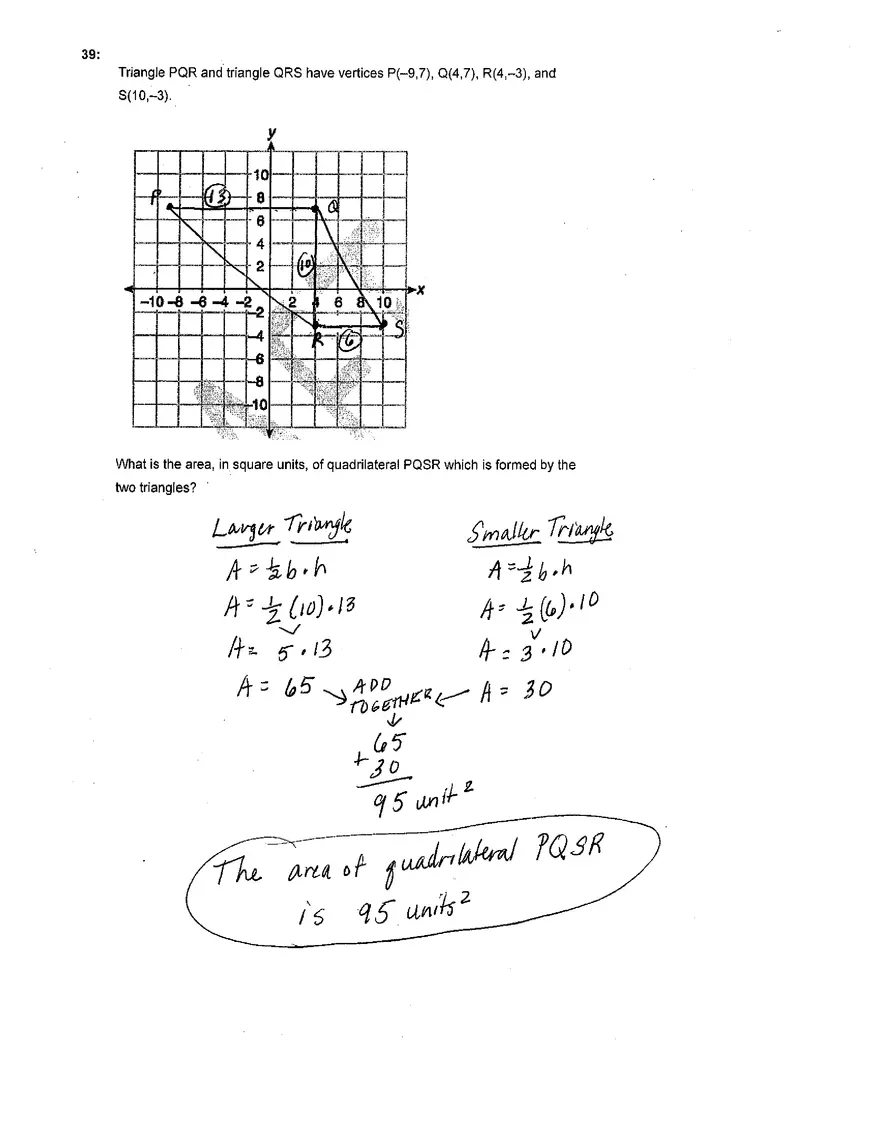 39:
Triangle PQR and triangle QRS have vertices P(–9,7), Q(4,7), R(4,–3), and
S(10,–3).
y
10
P 13 8 Q
6
4
2 10
x
–10 –8 –6 –4 –2 2 4 6 8 10
–2
R 6 S
–4
–6
–8
–10
What is the area, in square units, of quadrilateral PQSR which is formed by the
two triangles?
Larger Triangle Smaller Triangle
A = ½ b · h A = ½ b · h
A = ½ (10) · 13 A = ½ (6) · 10
A = 5 · 13 A = 3 · 10
A = 65 → ADD TOGETHER ← A = 30
↓
65
+ 30
95 unit²
The area of quadrilateral PQSR
is 95 units²